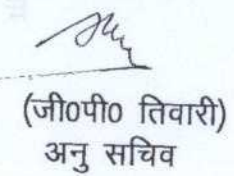 (जी0पी0 तिवारी)
अनु सचिव